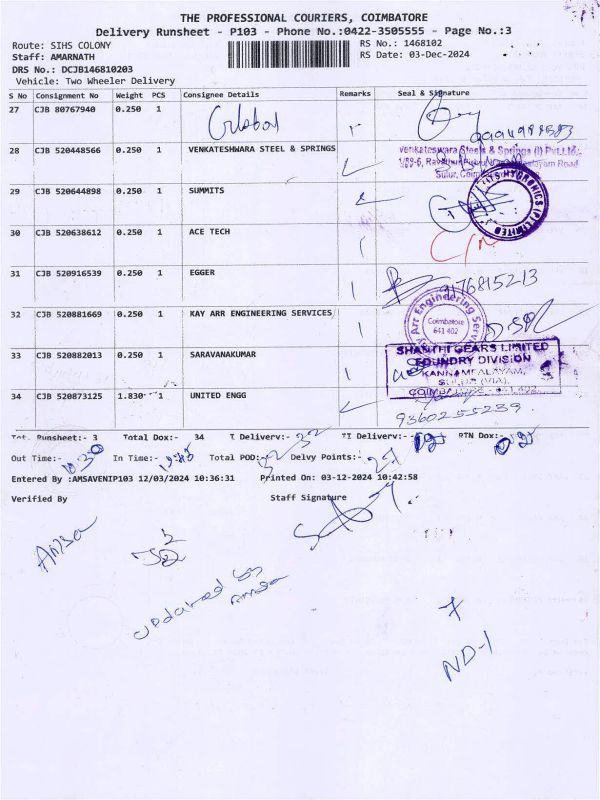 THE PROFESSIONAL COURIERS, COIMBATORE
Delivery Runsheet - P103 - Phone No.:0422-3505555 - Page No.:3
Route: SIHS COLONY
RS No.: 1468102
Staff: AMARNATH
RS Date: 03-Dec-2024
DRS No.: DCJB146810203
Vehicle: Two Wheeler Delivery
S No Consignment No Weight PCS Consignee Details Remarks Seal & Signature
27 CJB 80767940 0.250 1 Global
28 CJB 520448566 0.250 1 VENKATESHWARA STEEL & SPRINGS
Venkateswara Steels & Springs (I) Pvt.Ltd.
Sulur,
29 CJB 520644898 0.250 1 SUMMITS
HYDRONICS (P) LIMITED
30 CJB 520638612 0.250 1 ACE TECH
31 CJB 520916539 0.250 1 EGGER 9176815213
32 CJB 520881669 0.250 1 KAY ARR ENGINEERING SERVICES
Arr Engineering
Coimbatore
641 402
33 CJB 520882013 0.250 1 SARAVANAKUMAR
SHANTHI GEARS LIMITED
FOUNDRY DIVISION
KANNAMPALAYAM,
SULUR (VIA),
COIMBATORE - 641 402
34 CJB 520873125 1.830 1 UNITED ENGG
9360255239
Tot. Runsheet:- 3 Total Dox:- 34 I Delivery:- 32 II Delivery:- RTN Dox:-
Out Time:- 10.30 In Time:- Total POD:- 32 Delvy Points:- 27
Entered By :AMSAVENIP103 12/03/2024 10:36:31 Printed On: 03-12-2024 10:42:58
Verified By Staff Signature
Amsa
updated by
Amsa
ND-1